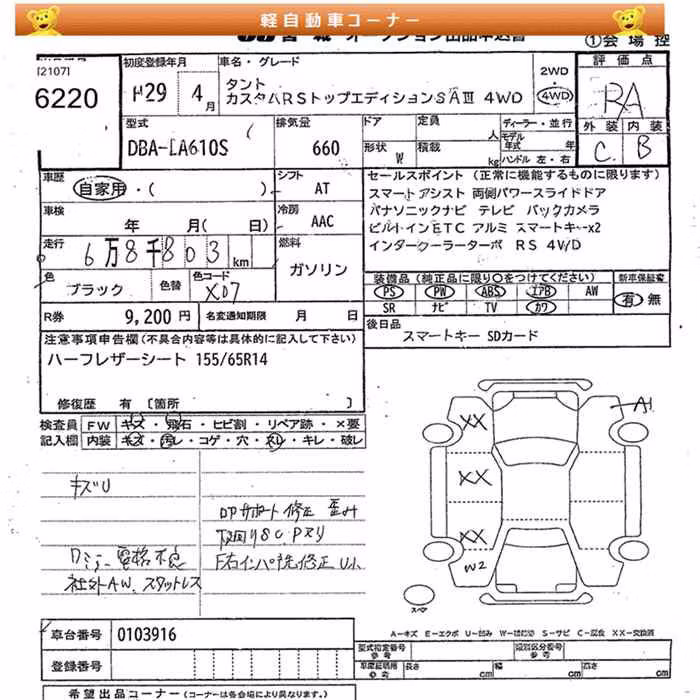 軽自動車コーナー
①会場控
[2107]
6220
初度登録年月
H29 4月
車名・グレード
タント
カスタムRSトップエディションSAⅢ 4WD
2WD
・
4WD
評価点
RA
外装 内装
C B
型式
DBA-LA610S
排気量
660
ドア
形状 W
定員
人
積載
kg
ディーラー・並行
モデル
年式 年
ハンドル 左・右
車歴
自家用・( )
シフト
AT
車検
年 月( 日)
冷房
AAC
走行
6万8千803km
燃料
ガソリン
色
ブラック
色替
色コード
X07
R券
9,200円
名変通知期限 月 日
セールスポイント (正常に機能するものに限ります)
スマートアシスト 両側パワースライドドア
パナソニックナビ テレビ バックカメラ
ビルトインETC アルミ スマートキーx2
インタークーラーターボ RS 4WD
装備品(純正品に限り〇をつけてください)
PS PW ABS エアB AW
SR ナビ TV カワ
新車保証書
有・無
後日品
スマートキー SDカード
注意事項申告欄(不具合内容等は具体的に記入して下さい)
ハーフレザーシート 155/65R14
修復歴 有 〔箇所
検査員
記入欄
FW キズ・飛石・ヒビ割・リペア跡・×要
内装 キズ・汚レ・コゲ・穴・ネレ・キレ・破レ
キズU
社外AW、スタットレス
修正 歪み
下廻りSC.Pスリ
A1
XX
XX
XX
W2
スペア
A-キズ E-エクボ U-凹み W-補修跡 S-サビ C-腐食 XX-交換済
車台番号 0103916
登録番号
型式指定番号
参考
類別区分番号
参考
車庫証明用
参考
長さ cm 幅 cm 高さ cm
希望出品コーナー(コーナーは各会場により異なります。)